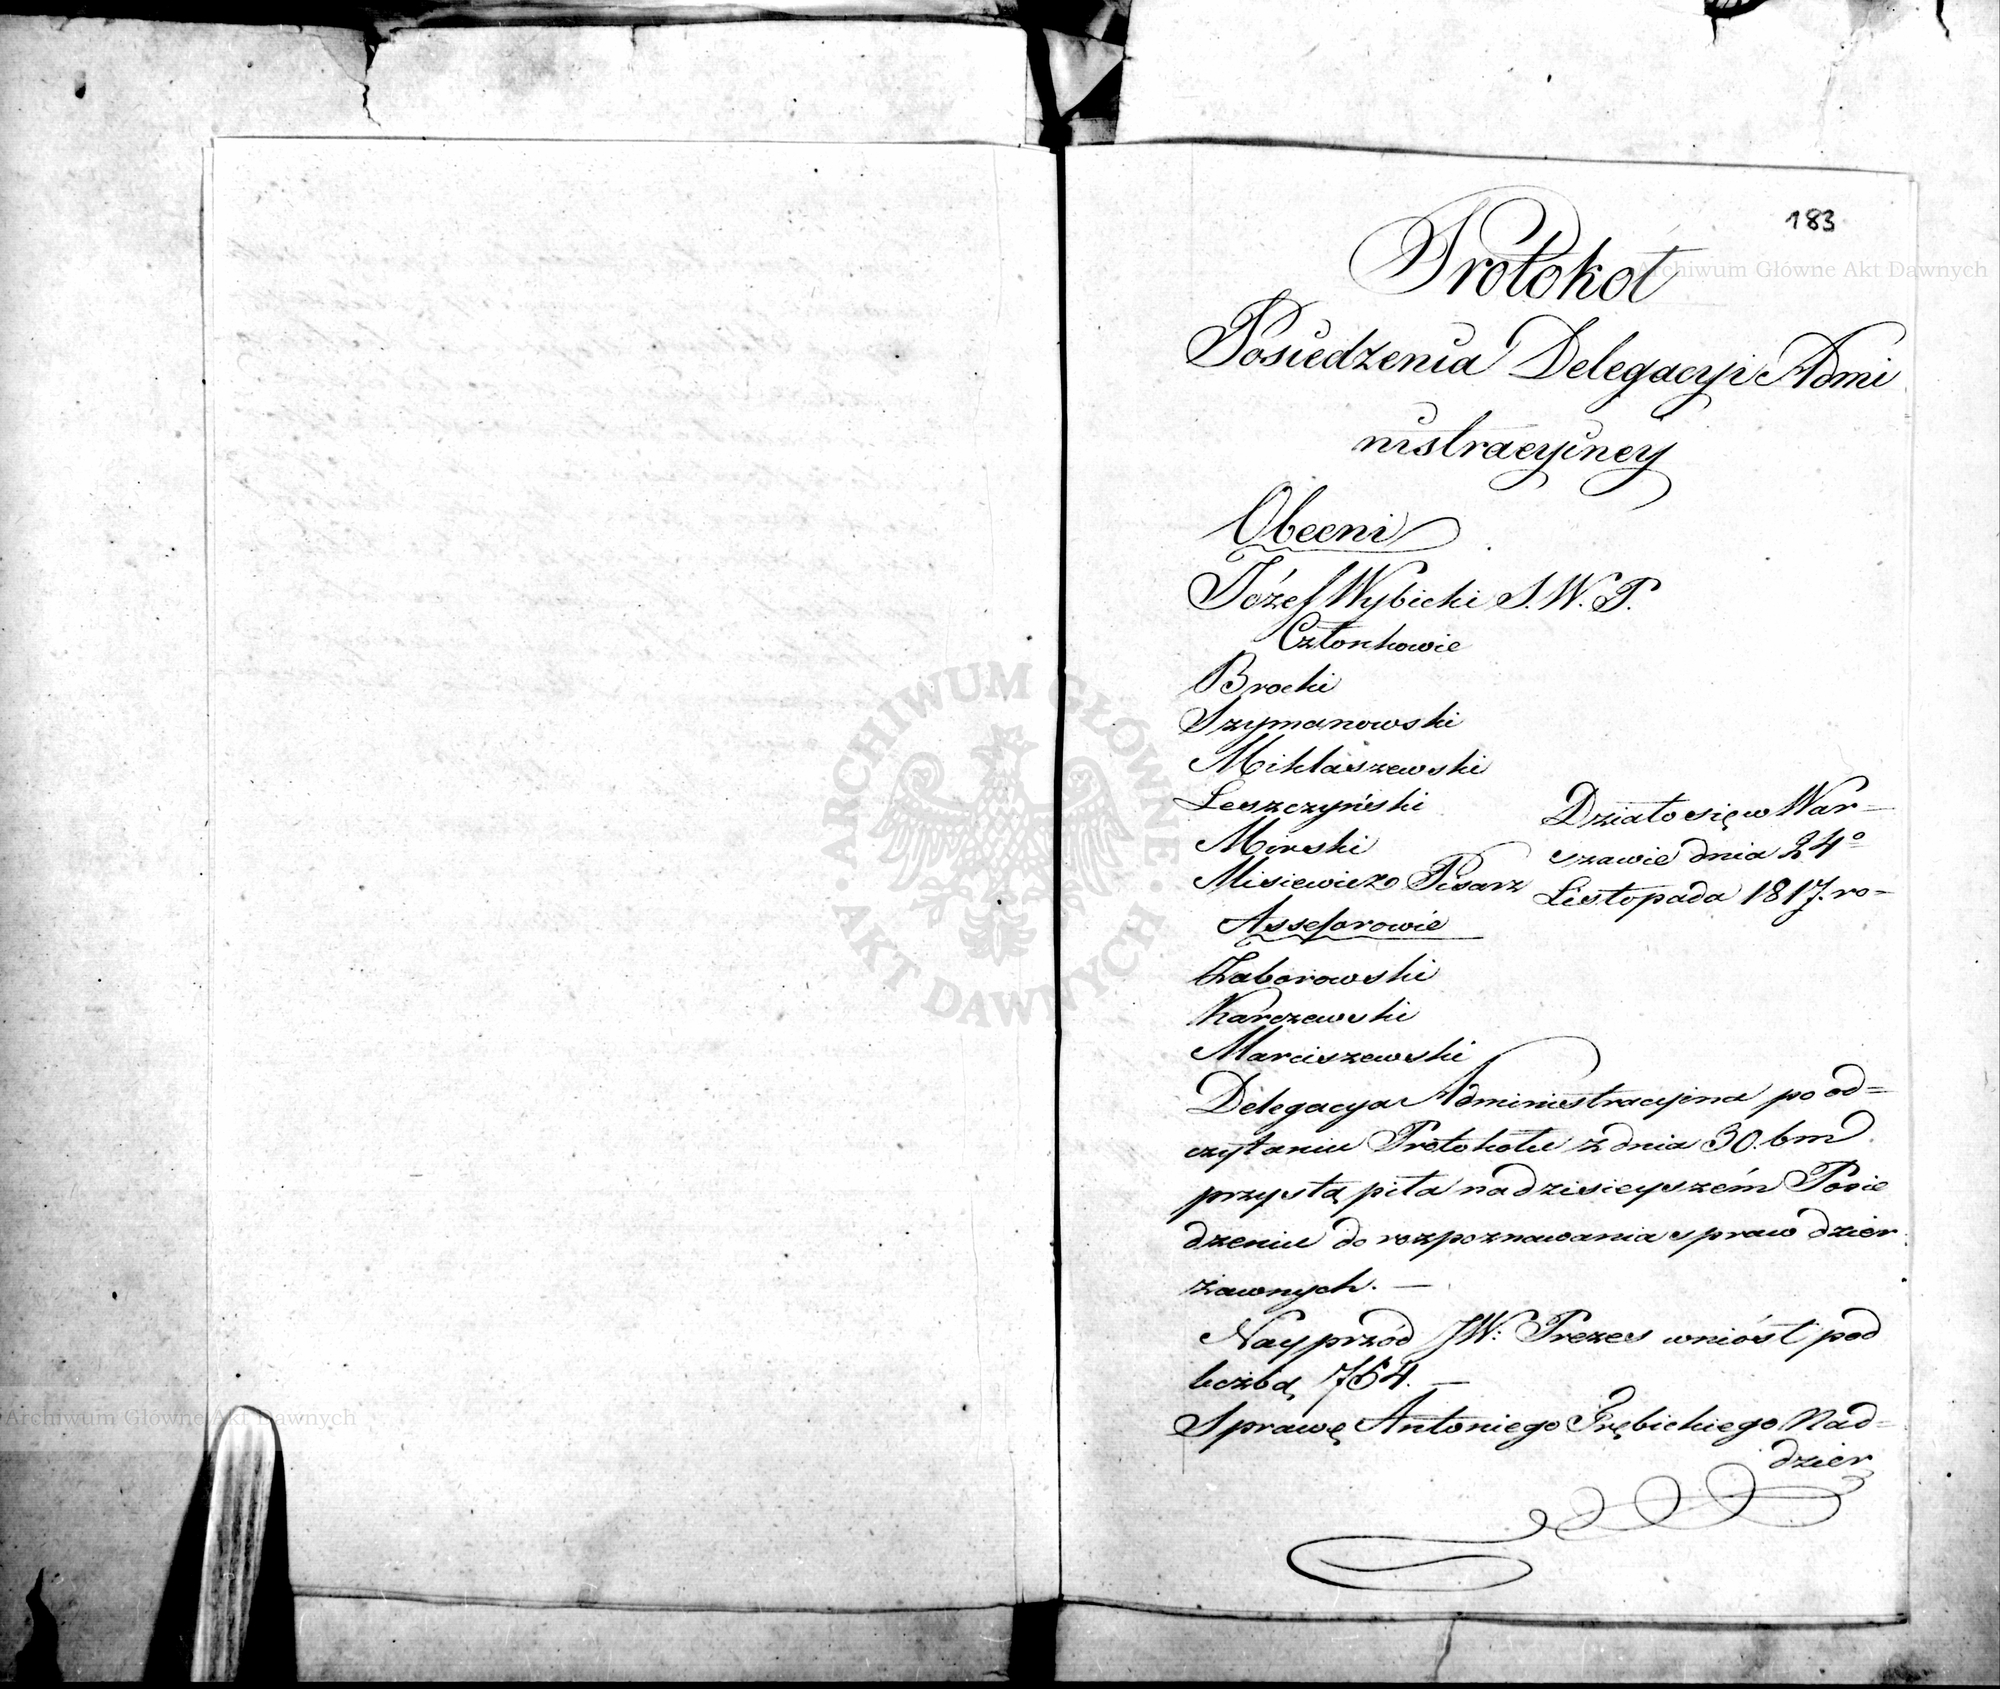 183
Protokoł
Posiedzenia Delegacyi Admi
nistracyiney
Obecni
Józef Wybicki S. W. P.
Członkowie
Brocki
Szymanowski
Mikłaszewski
Leszczyński
Mirski
Misiewicz Pisarz
Assessorowie
Zaborowski
Karczewski
Marciszewski
Działo się w War-
szawie dnia 24º
Listopada 1817. ro-
Delegacya Administracyina po od=
czytaniu Protokołu z dnia 30. bm
przystąpiła na dzisieyszém Posie
dzeniu do rozpoznawania spraw dzier
żawnych. —
Nayprzód JW: Prezes wniósł pod
liczbą 764. —
Sprawę Antoniego Trębickiego Nad-
dzier
Archiwum Główne Akt Dawnych
ARCHIWUM GŁÓWNE
· AKT DAWNYCH ·
Archiwum Główne Akt Dawnych